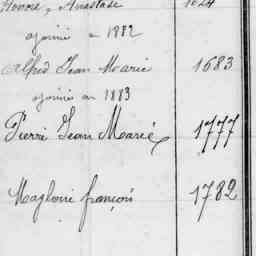 Honoré, Anastase 1624
ajourné en 1882
Alfred Jean Marie 1683
ajourné en 1883
Pierre Jean Marie 1777
Magloire françois 1782